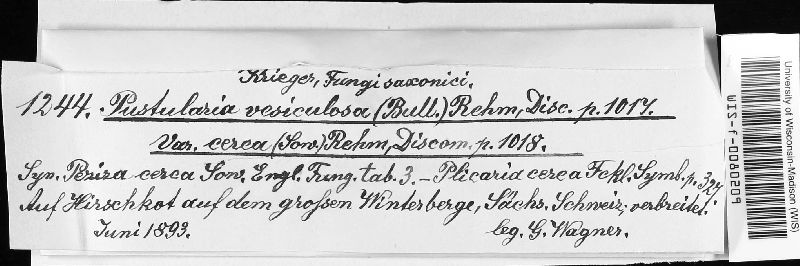 Krieger, Fungi saxonici.
1244. Pustularia vesiculosa (Bull.) Rehm, Disc. p. 1017.
Var. cerea (Sow.) Rehm, Discom. p. 1018.
Syn. Peziza cerea Sow. Engl. Fung. tab. 3. – Plicaria cerea Fckl. Symb. p. 327.
Auf Hirschkot auf dem großen Winterberge, Sächs. Schweiz; verbreitet.
Juni 1893. leg. G. Wagner.
University of Wisconsin-Madison (WIS)
WIS-f-0060209